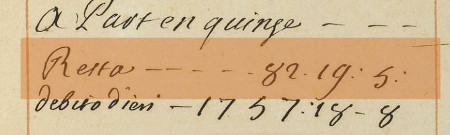 a Part en quinze - - - -
Resta - - - - - 82 : 19 : 5 :
debito d'ieri - 1757 : 18 - 8